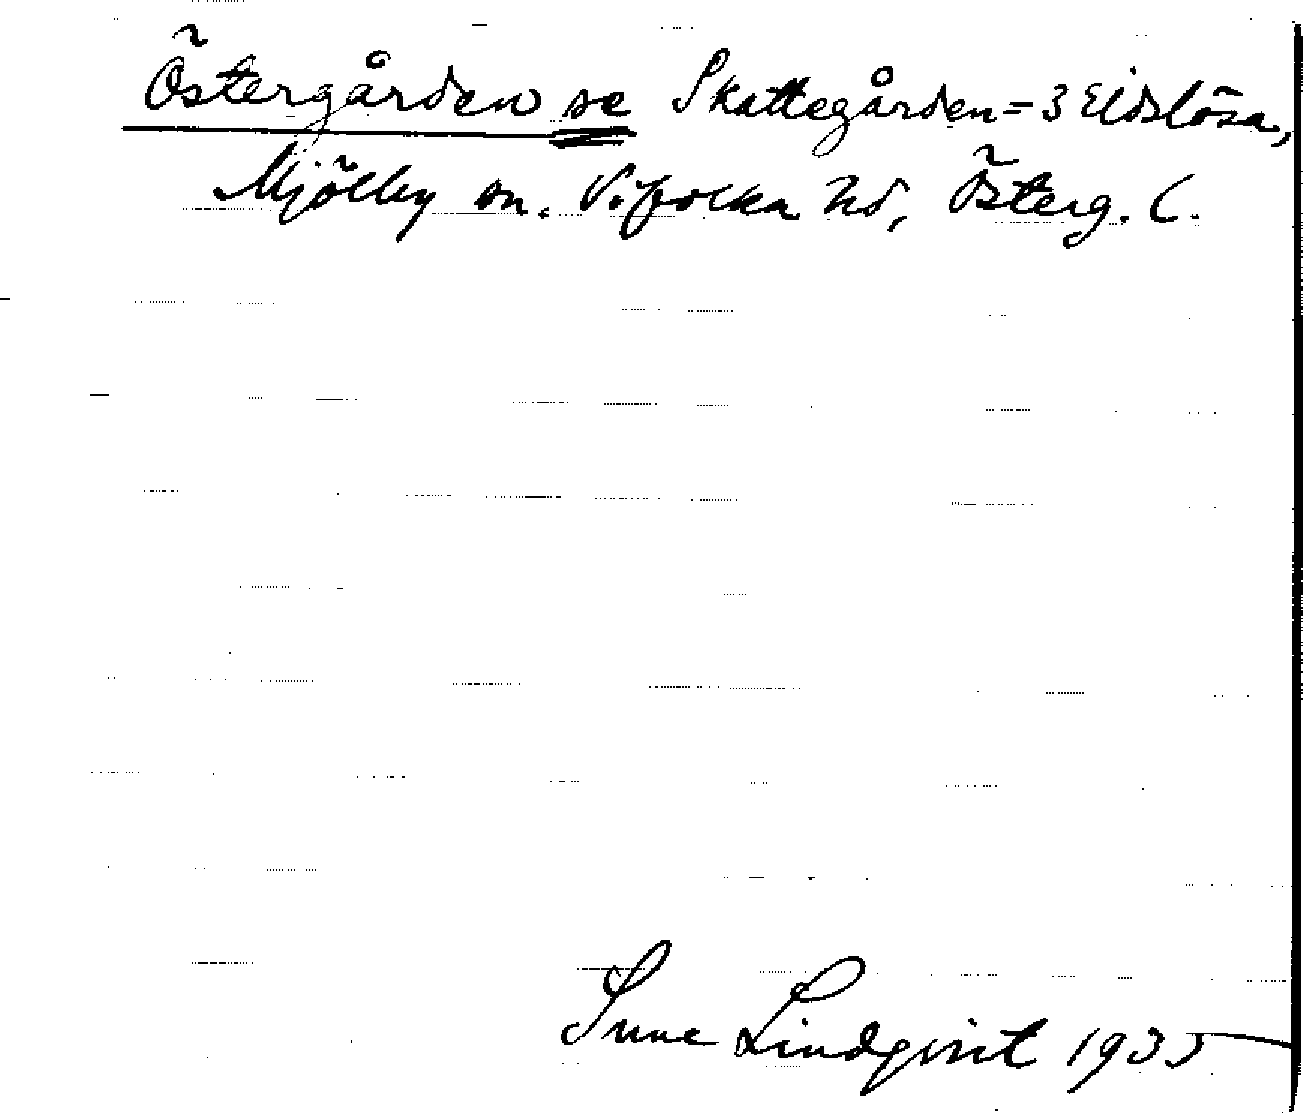 Östergården se Skattegården = 3 Eldslösa,
Mjölby sn. Vifolka hd, Österg. l.
Sune Lindqvist 1935